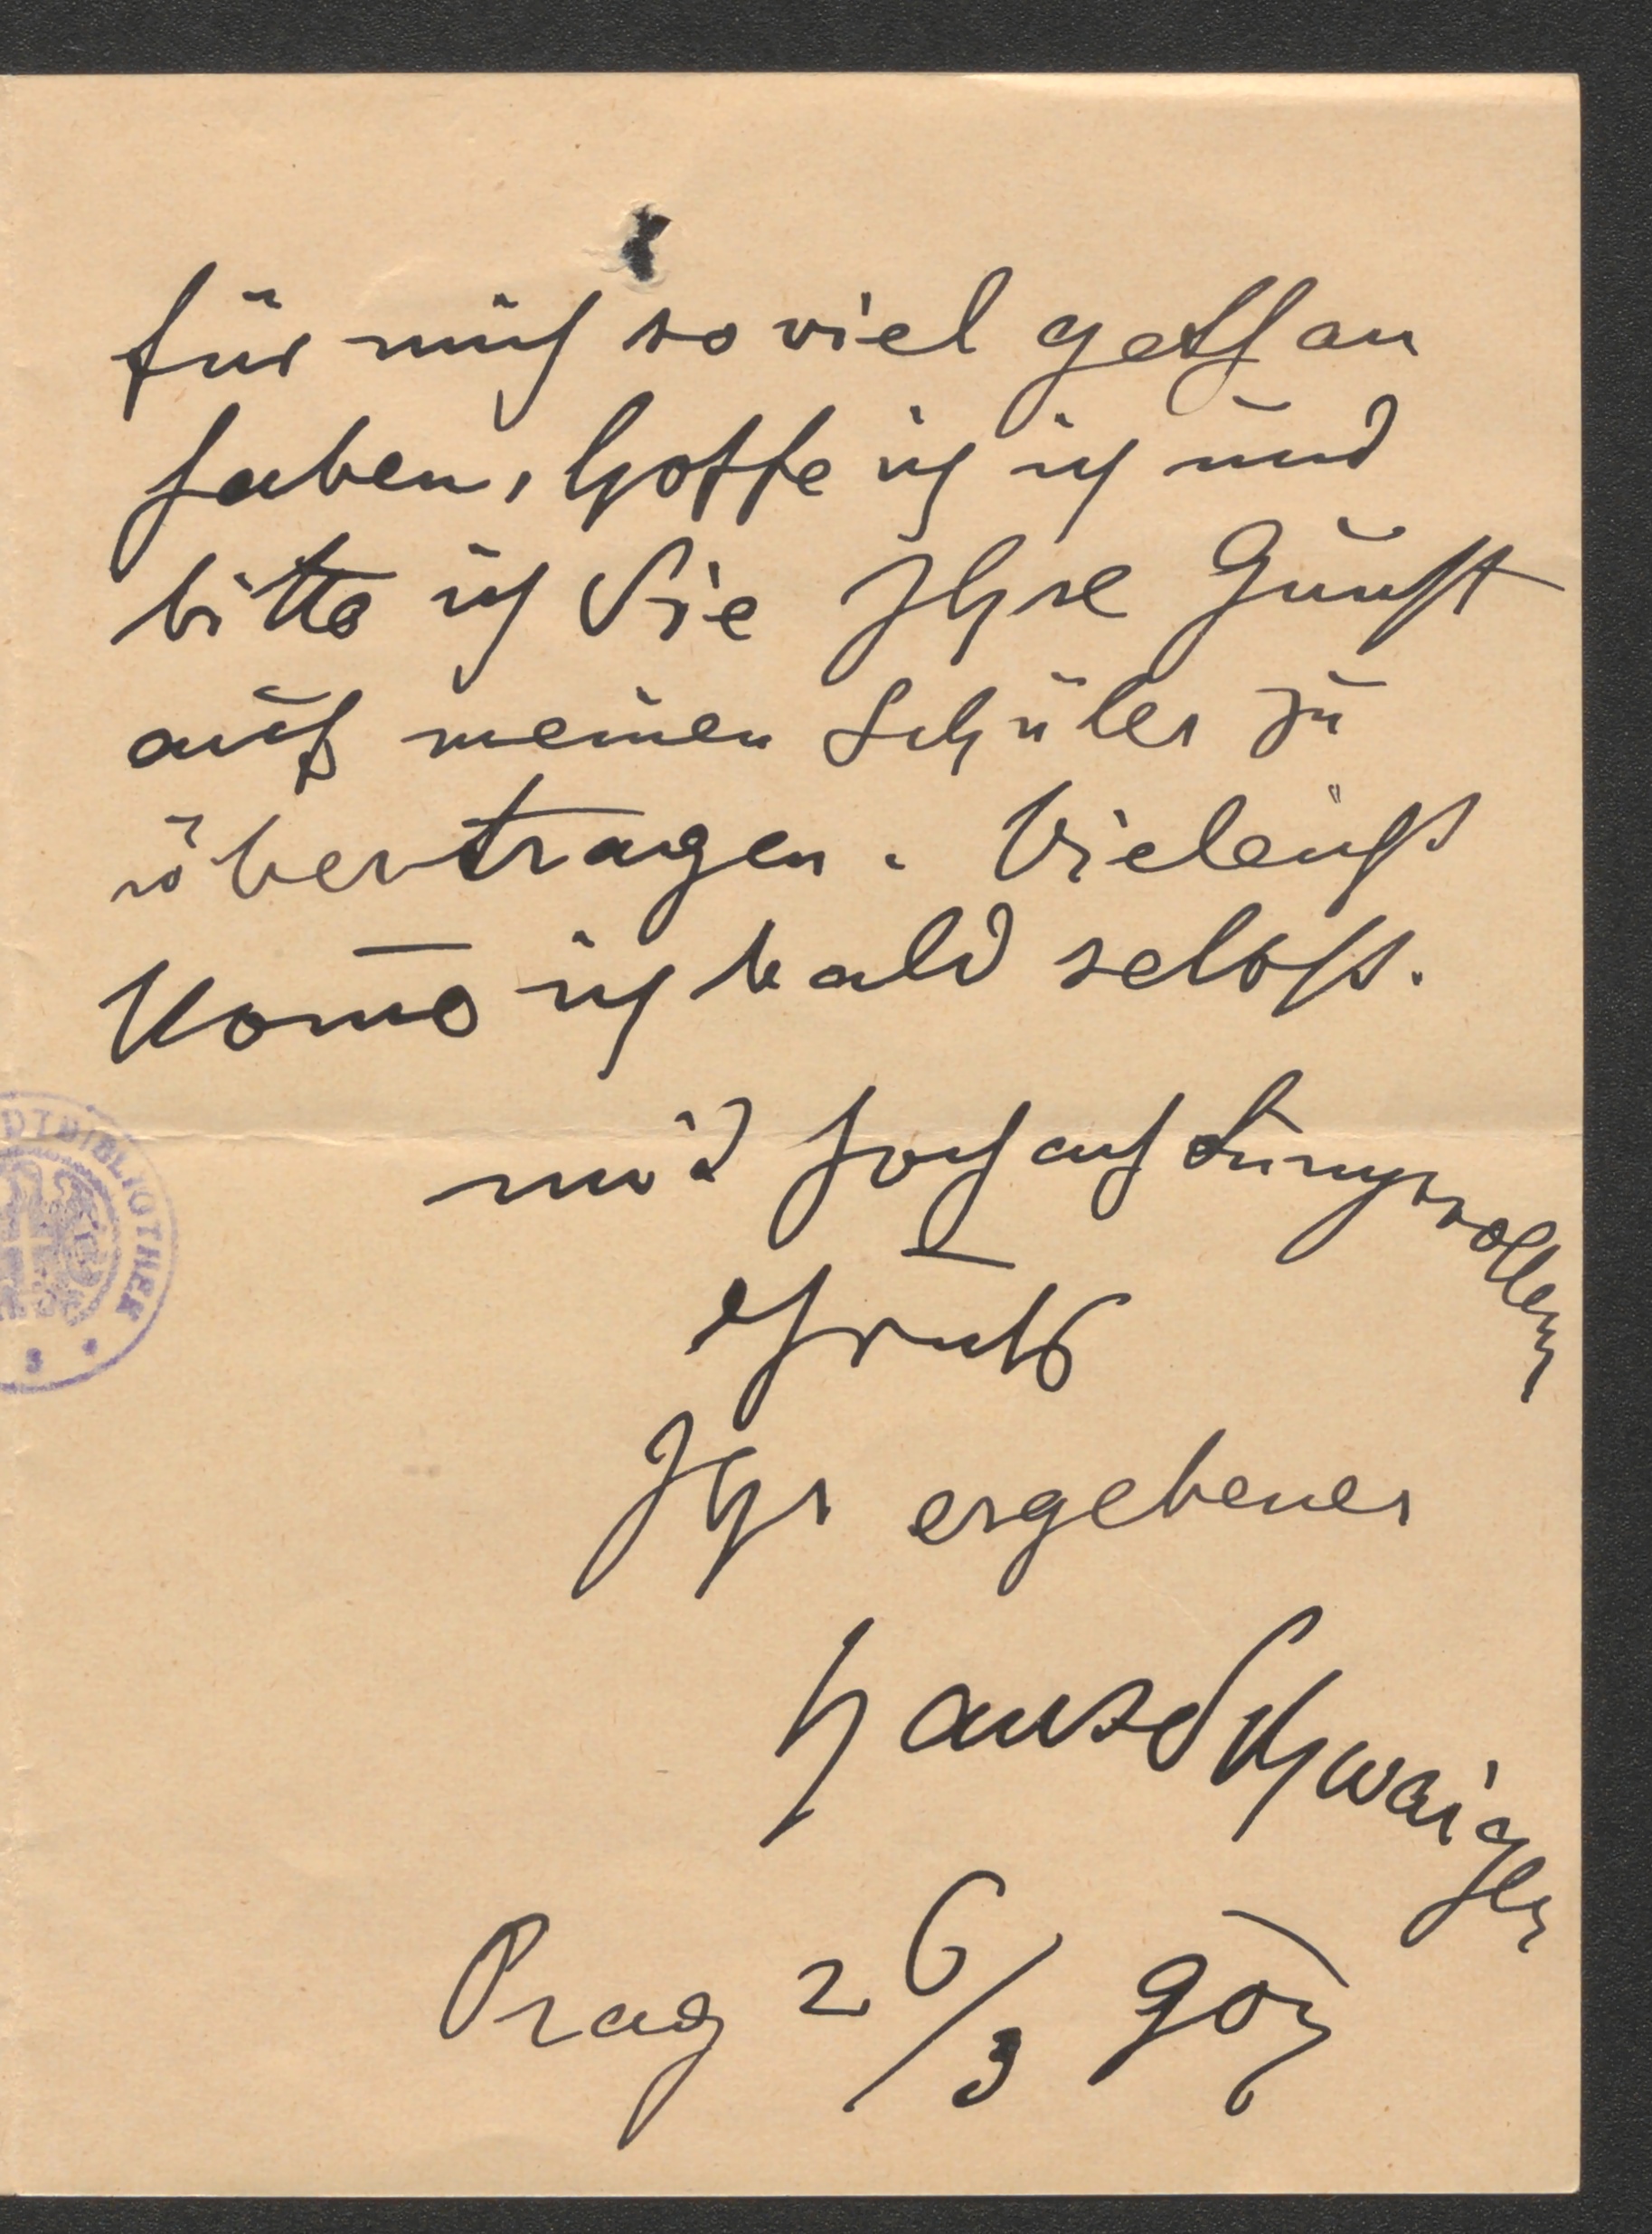 für mich so viel gethan
haben, hoffe ich ich und
bitte ich Sie Ihre Gunst
auf meinen Schüler zu
übertragen. Vieleicht
kom̄e ich bald selbst.
mid hochachtungsvollem
Ihr ergebener
Hans Schwaiger
Prag 26/3 905
DTBIBLIOTHEK